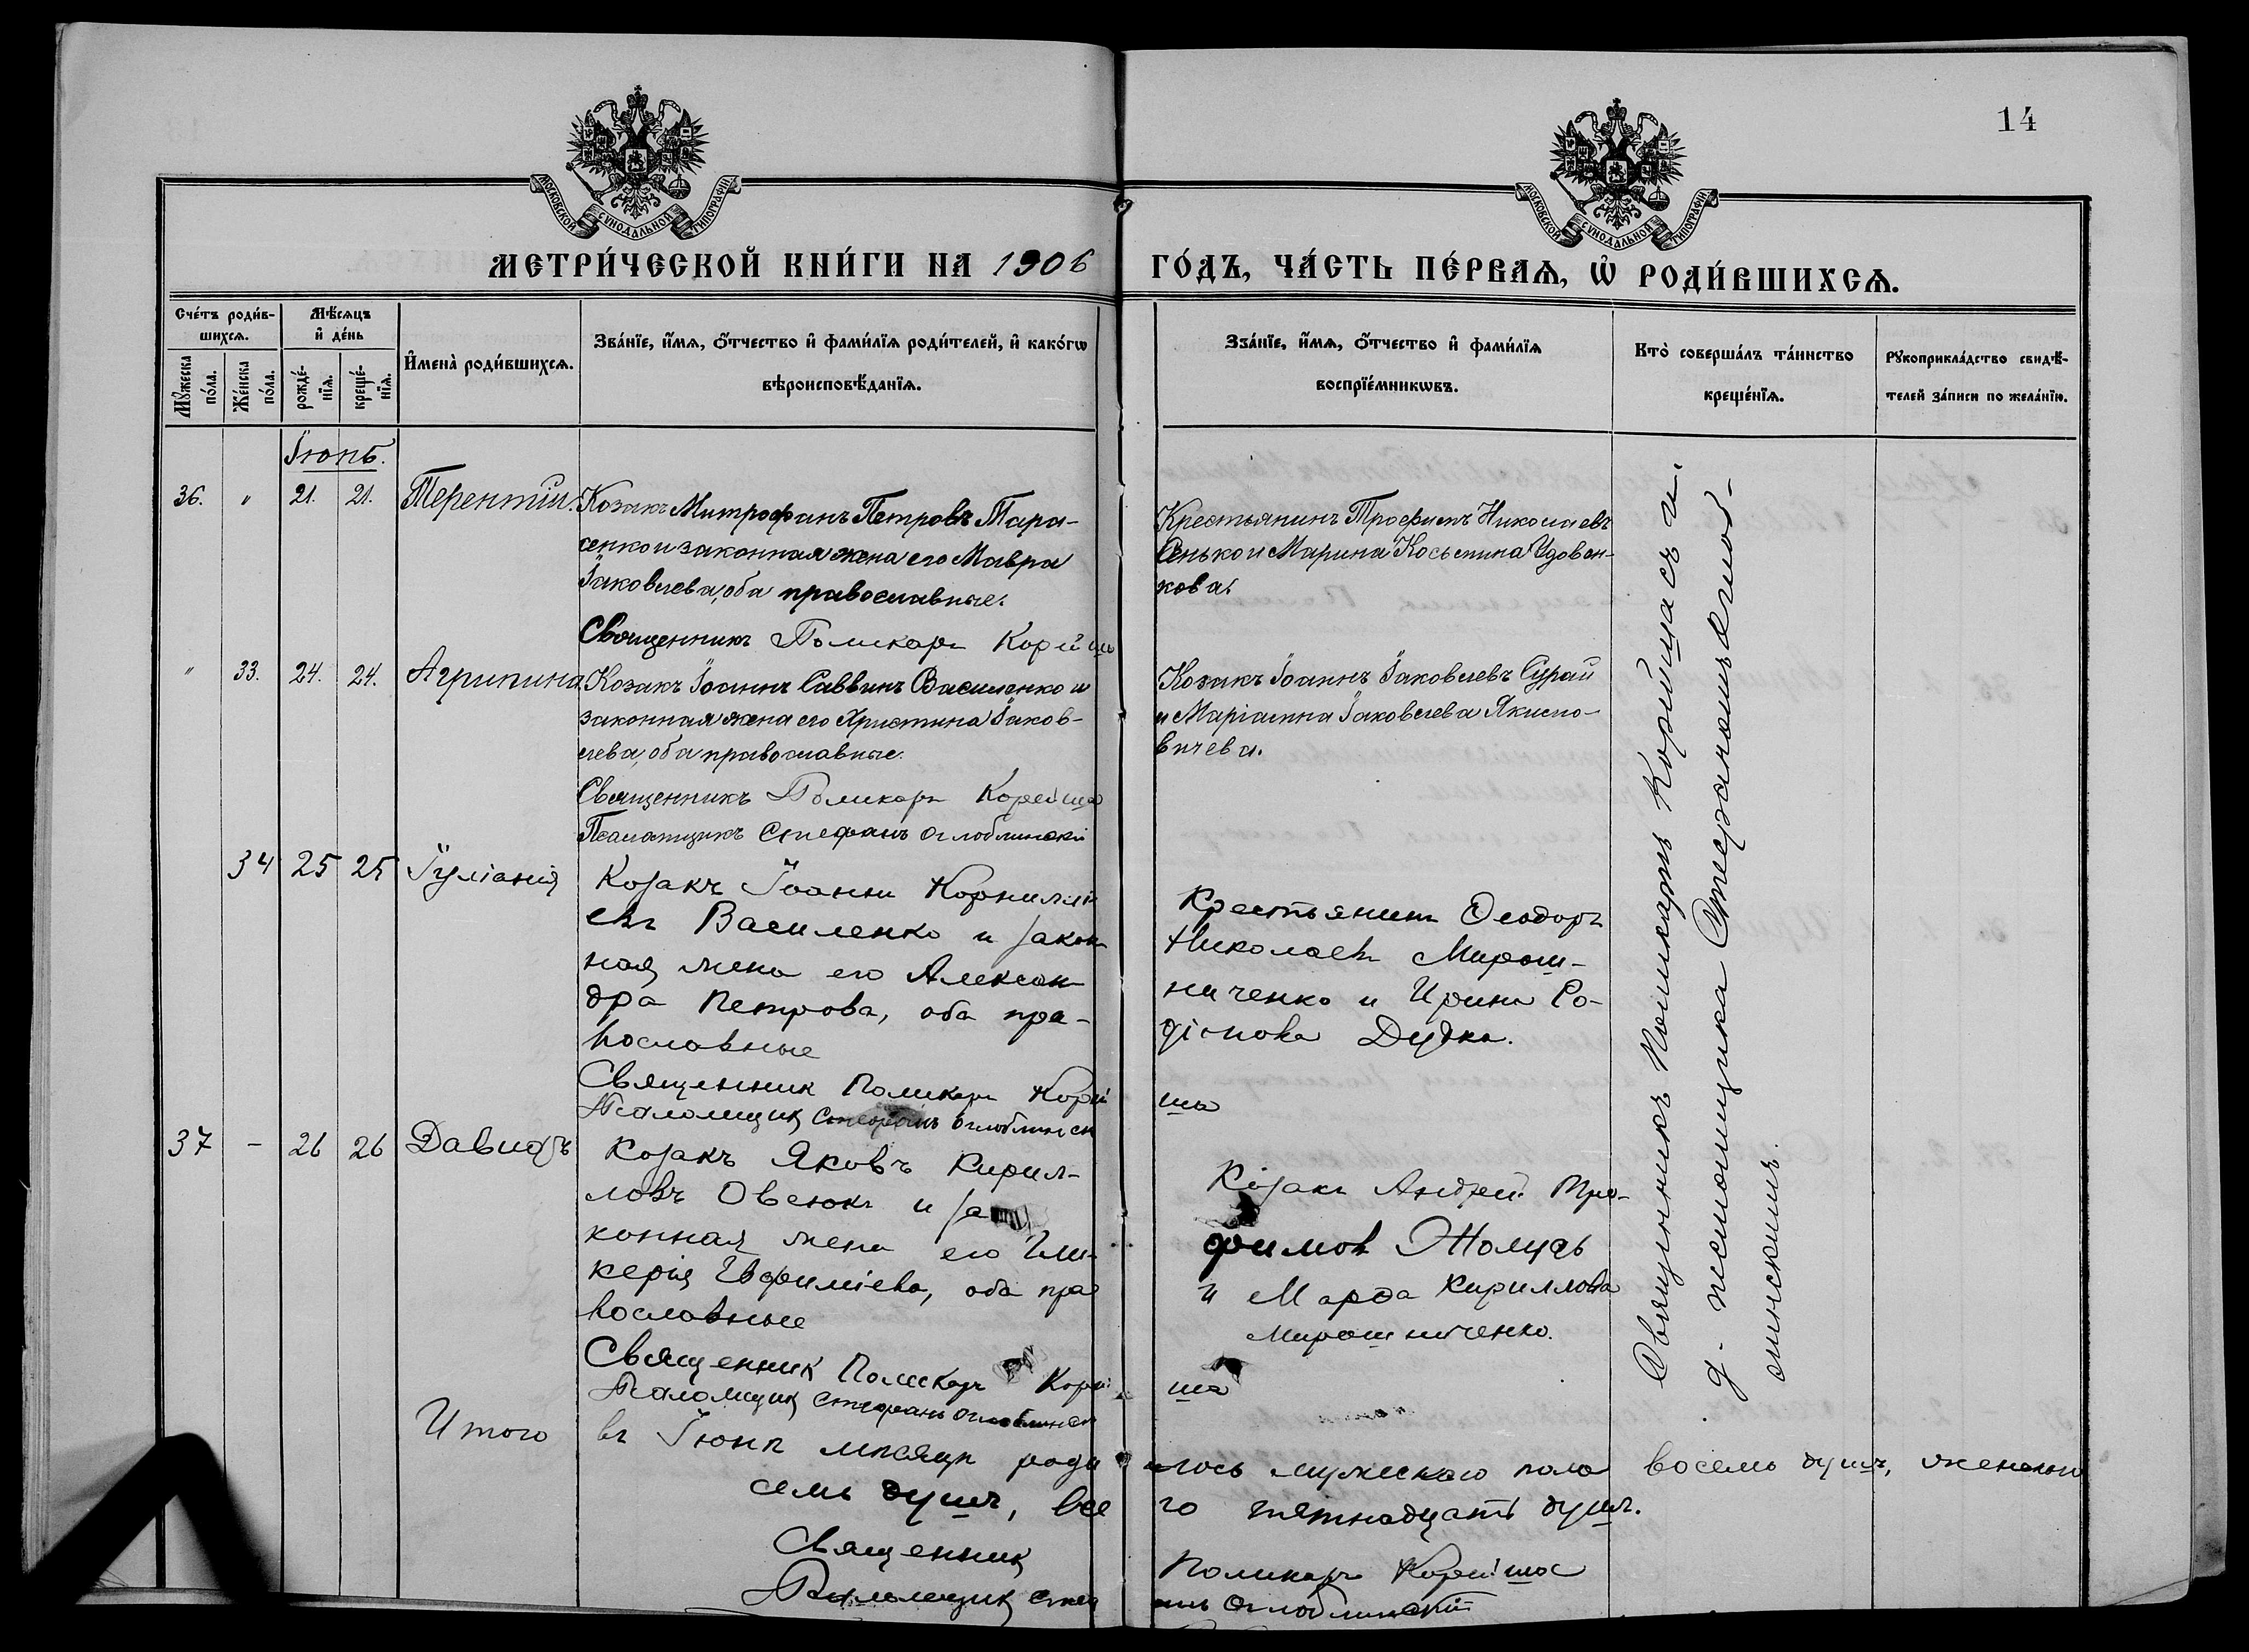 14
МОСКОВСКОЙ СѴНОДАЛЬНОЙ ТИПОГРАФІИ
МОСКОВСКОЙ СѴНОДАЛЬНОЙ ТИПОГРАФІИ
МЕТРИ́ЧЕСКОЙ КНИ́ГИ НА 1906 ГО́ДЪ, ЧА́СТЬ ПЕ́РВАѦ, Ѡ҆ РОДИ́ВШИХСѦ.
Сче́тъ роди́в-
шихсѧ.
Мꙋ́жеска по́ла.
Же́нска по́ла.
Мѣ́сѧцъ
и҆ де́нь
рожде́-
нїѧ.
креще́-
нїѧ.
И҆мена̀ роди́вшихсѧ.
Зва́нїе, и҆́мѧ, ѻ҆́тчество и҆ фами́лїѧ роди́телей, и҆ како́гѡ
вѣроисповѣ́данїѧ.
Зва́нїе, и҆́мѧ, ѻ҆́тчество и҆ фами́лїѧ
воспрїе́мникѡвъ.
Кто̀ соверша́лъ та́инство
креще́нїѧ.
Рꙋкоприкла́дство свидѣ́-
телей за́писи по жела́нїю.
Іюнь.
36. " 21. 21. Терентій.
Козакъ Митрофанъ Петровъ Тара-
сенко и законная жена его Мавра
Іаковлева, оба православные.
Священникъ Поликарп Корейша
Крестьянинъ Трофимъ Николаевъ
Сенько и Марина Косьмина Удовен-
кова.
" 33. 24. 24. Агрипина.
Козакъ Іоаннъ Саввинъ Василенко и
законная жена его Христина Іаков-
лева, оба православные.
Священникъ Поликарп Корейша
Псаломщикъ Стефанъ Оглоблинскій
Козакъ Іоаннъ Іаковлевъ Сурай
и Маріамна Іаковлева Якимо-
вичева.
34 25 25 Іуліанія
Козакъ Іоаннъ Корнилі
евъ Василенко и закон
ная жена его Алексан
дра Петрова, оба пра-
вославные
Священник Поликарп Корейша
Псаломщик Стефанъ Оглоблинск
Крестьянинъ Ѳеодоръ
Николаевъ Мирош-
ниченко и Ирина Ро-
діонова Дудка.
37 - 26 26 Давидъ
Козакъ Яковъ Кирил-
ловъ Овсюкъ и за
конная жена его Гли-
керія Евфиміева, оба пра
вославные
Священник Поликарп Корейша
Псаломщик Стефанъ Оглоблинск
Козакъ Андрей Тро-
фимов Жолудь
и Марѳа Кириллова
Мирошниченко.
Священникъ Поликарпъ Корейша съ и.
д. псаломщика Стефаномъ Оглоб-
линскимъ.
Итого въ Іюнѣ мѣсяцѣ родилось мужескаго пола восемь душъ, женскаго
семь душъ, всего пятнадцать душъ.
Священник Поликарп Корейша
Псаломщик Стефанъ Оглоблинскій